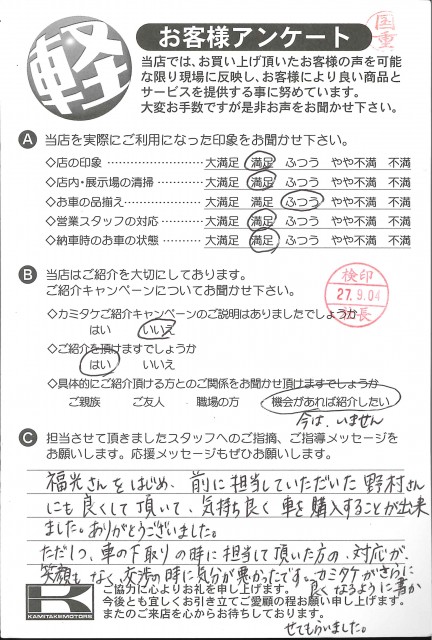 軽
お客様アンケート
国重
当店では、お買い上げ頂いたお客様の声を可能
な限り現場に反映し、お客様により良い商品と
サービスを提供する事に努めています。
大変お手数ですが是非お声をお聞かせ下さい。
A 当店を実際にご利用になった印象をお聞かせ下さい。
◇店の印象 ……………………… 大満足 満足 ふつう やや不満 不満
◇店内・展示場の清掃 ………… 大満足 満足 ふつう やや不満 不満
◇お車の品揃え ………………… 大満足 満足 ふつう やや不満 不満
◇営業スタッフの対応 ………… 大満足 満足 ふつう やや不満 不満
◇納車時のお車の状態 ………… 大満足 満足 ふつう やや不満 不満
B 当店はご紹介を大切にしてあります。
ご紹介キャンペーンについてお聞かせ下さい。
検印
27.9.04
社長
◇カミタケご紹介キャンペーンのご説明はありましたでしょうか
はい いいえ
◇ご紹介を頂けますでしょうか
はい いいえ
◇具体的にご紹介頂ける方とのご関係をお聞かせ頂けますでしょうか
ご親族 ご友人 職場の方 機会があれば紹介したい
今は、いません
C 担当させて頂きましたスタッフへのご指摘、ご指導メッセージを
お願いします。応援メッセージもぜひお願いします。
福光さんをはじめ、前に担当していただいた野村さん
にも良くして頂いて、気持ち良く車を購入することが出来
ました。ありがとうございました。
ただし1つ、車の下取りの時に担当して頂いた方の、対応が、
笑顔もなく、交渉の時に気分が悪かったです。カミタケがさらに
良くなるように書か
せてもらいました。
K
KAMITAKEMOTORS
ご協力に心よりお礼を申し上げます。
今後とも宜しくお引き立てご愛顧の程お願い申し上げます。
またのご来店を心からお待ちしております。